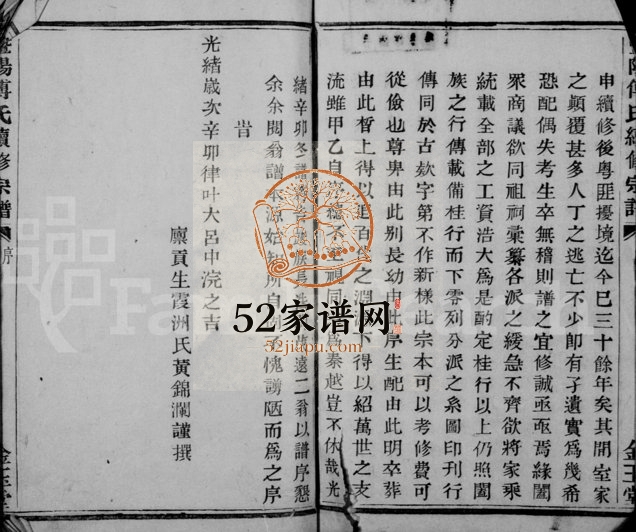 申續修後粤匪擾境迄今巳三十餘年矣其間室家
之顛覆甚多人丁之逃亡不少卽有孑遺實爲幾希
恐配偶失考生卒無稽則譜之宜修誠亟亟焉緣闔
眾商議欲同祖祠彙纂各派之綏急不齊欲將家乘
統載全部之工資浩大爲是酌定桂行以上仍照闔
族之行傳載備桂行而下零列分派之系圖印刊行
傳同於古欵字第不作新樣此宗本可以考修費可
從儉也尊卑由此别長幼由此序生配由此明卒葬
由此晢上得以追百世之淵 下得以紹萬世之支
流雖甲乙自 不 視同 爲秦越豈不休哉光
緒辛卯冬譜 族長 遠二翁以譜序懇
余余閱翁譜 源始知所自 愧謭陋而爲之序
旹
光緒歲次辛卯律叶大呂中浣之吉
廩貢生霞洲氏黃錦瀾謹撰
陽傅氏續修宗譜
序
金玉堂
傅氏續修宗譜
金玉堂
52家谱网
52jiapu.com